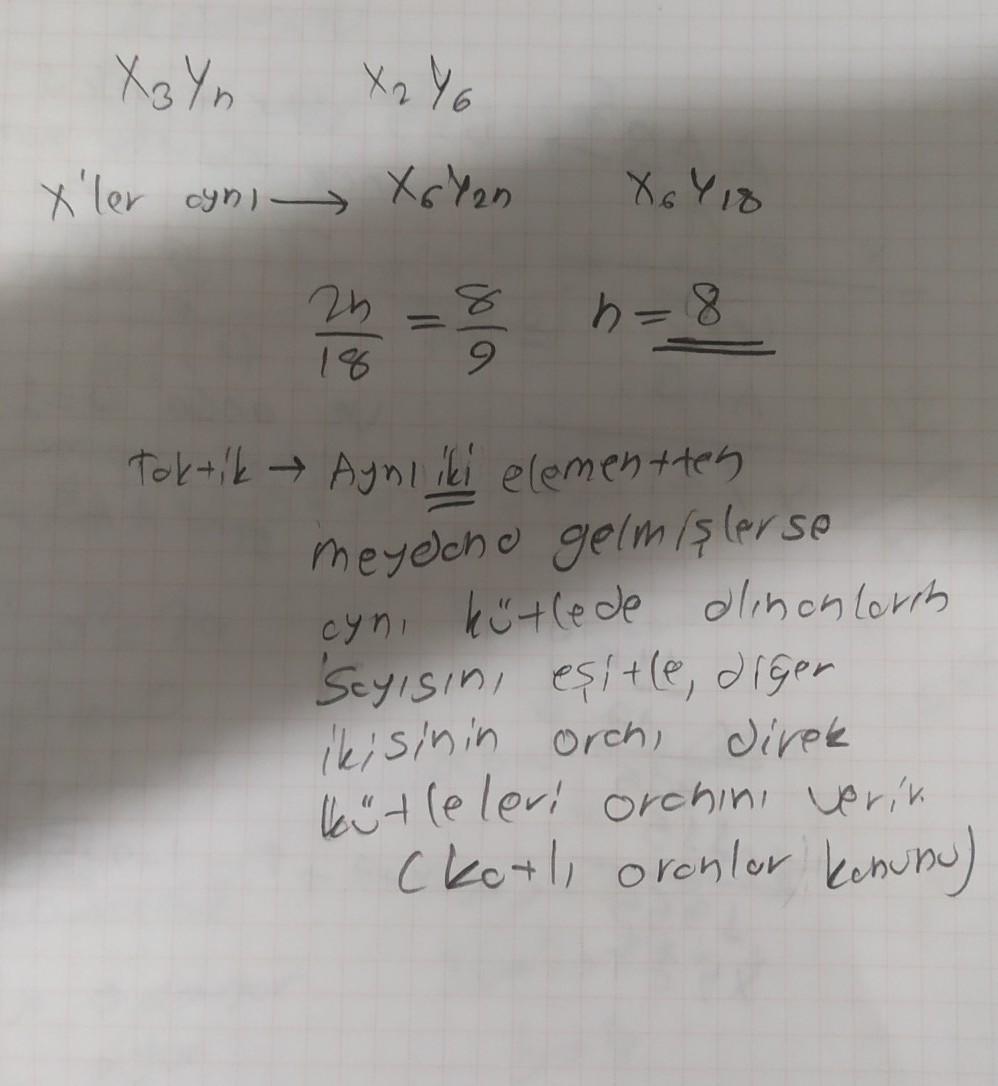 X₃Yn X₂Y₆
X'ler aynı → X₆Y₂n X₆Y₁₈
2n/18 = 8/9 n = 8
Taktik → Aynı iki elementten
meydana gelmişlerse
aynı kütlede alınanların
sayısını eşitle, diğer
ikisinin oranı direk
kütleleri oranını verir.
(Katlı oranlar kanunu)